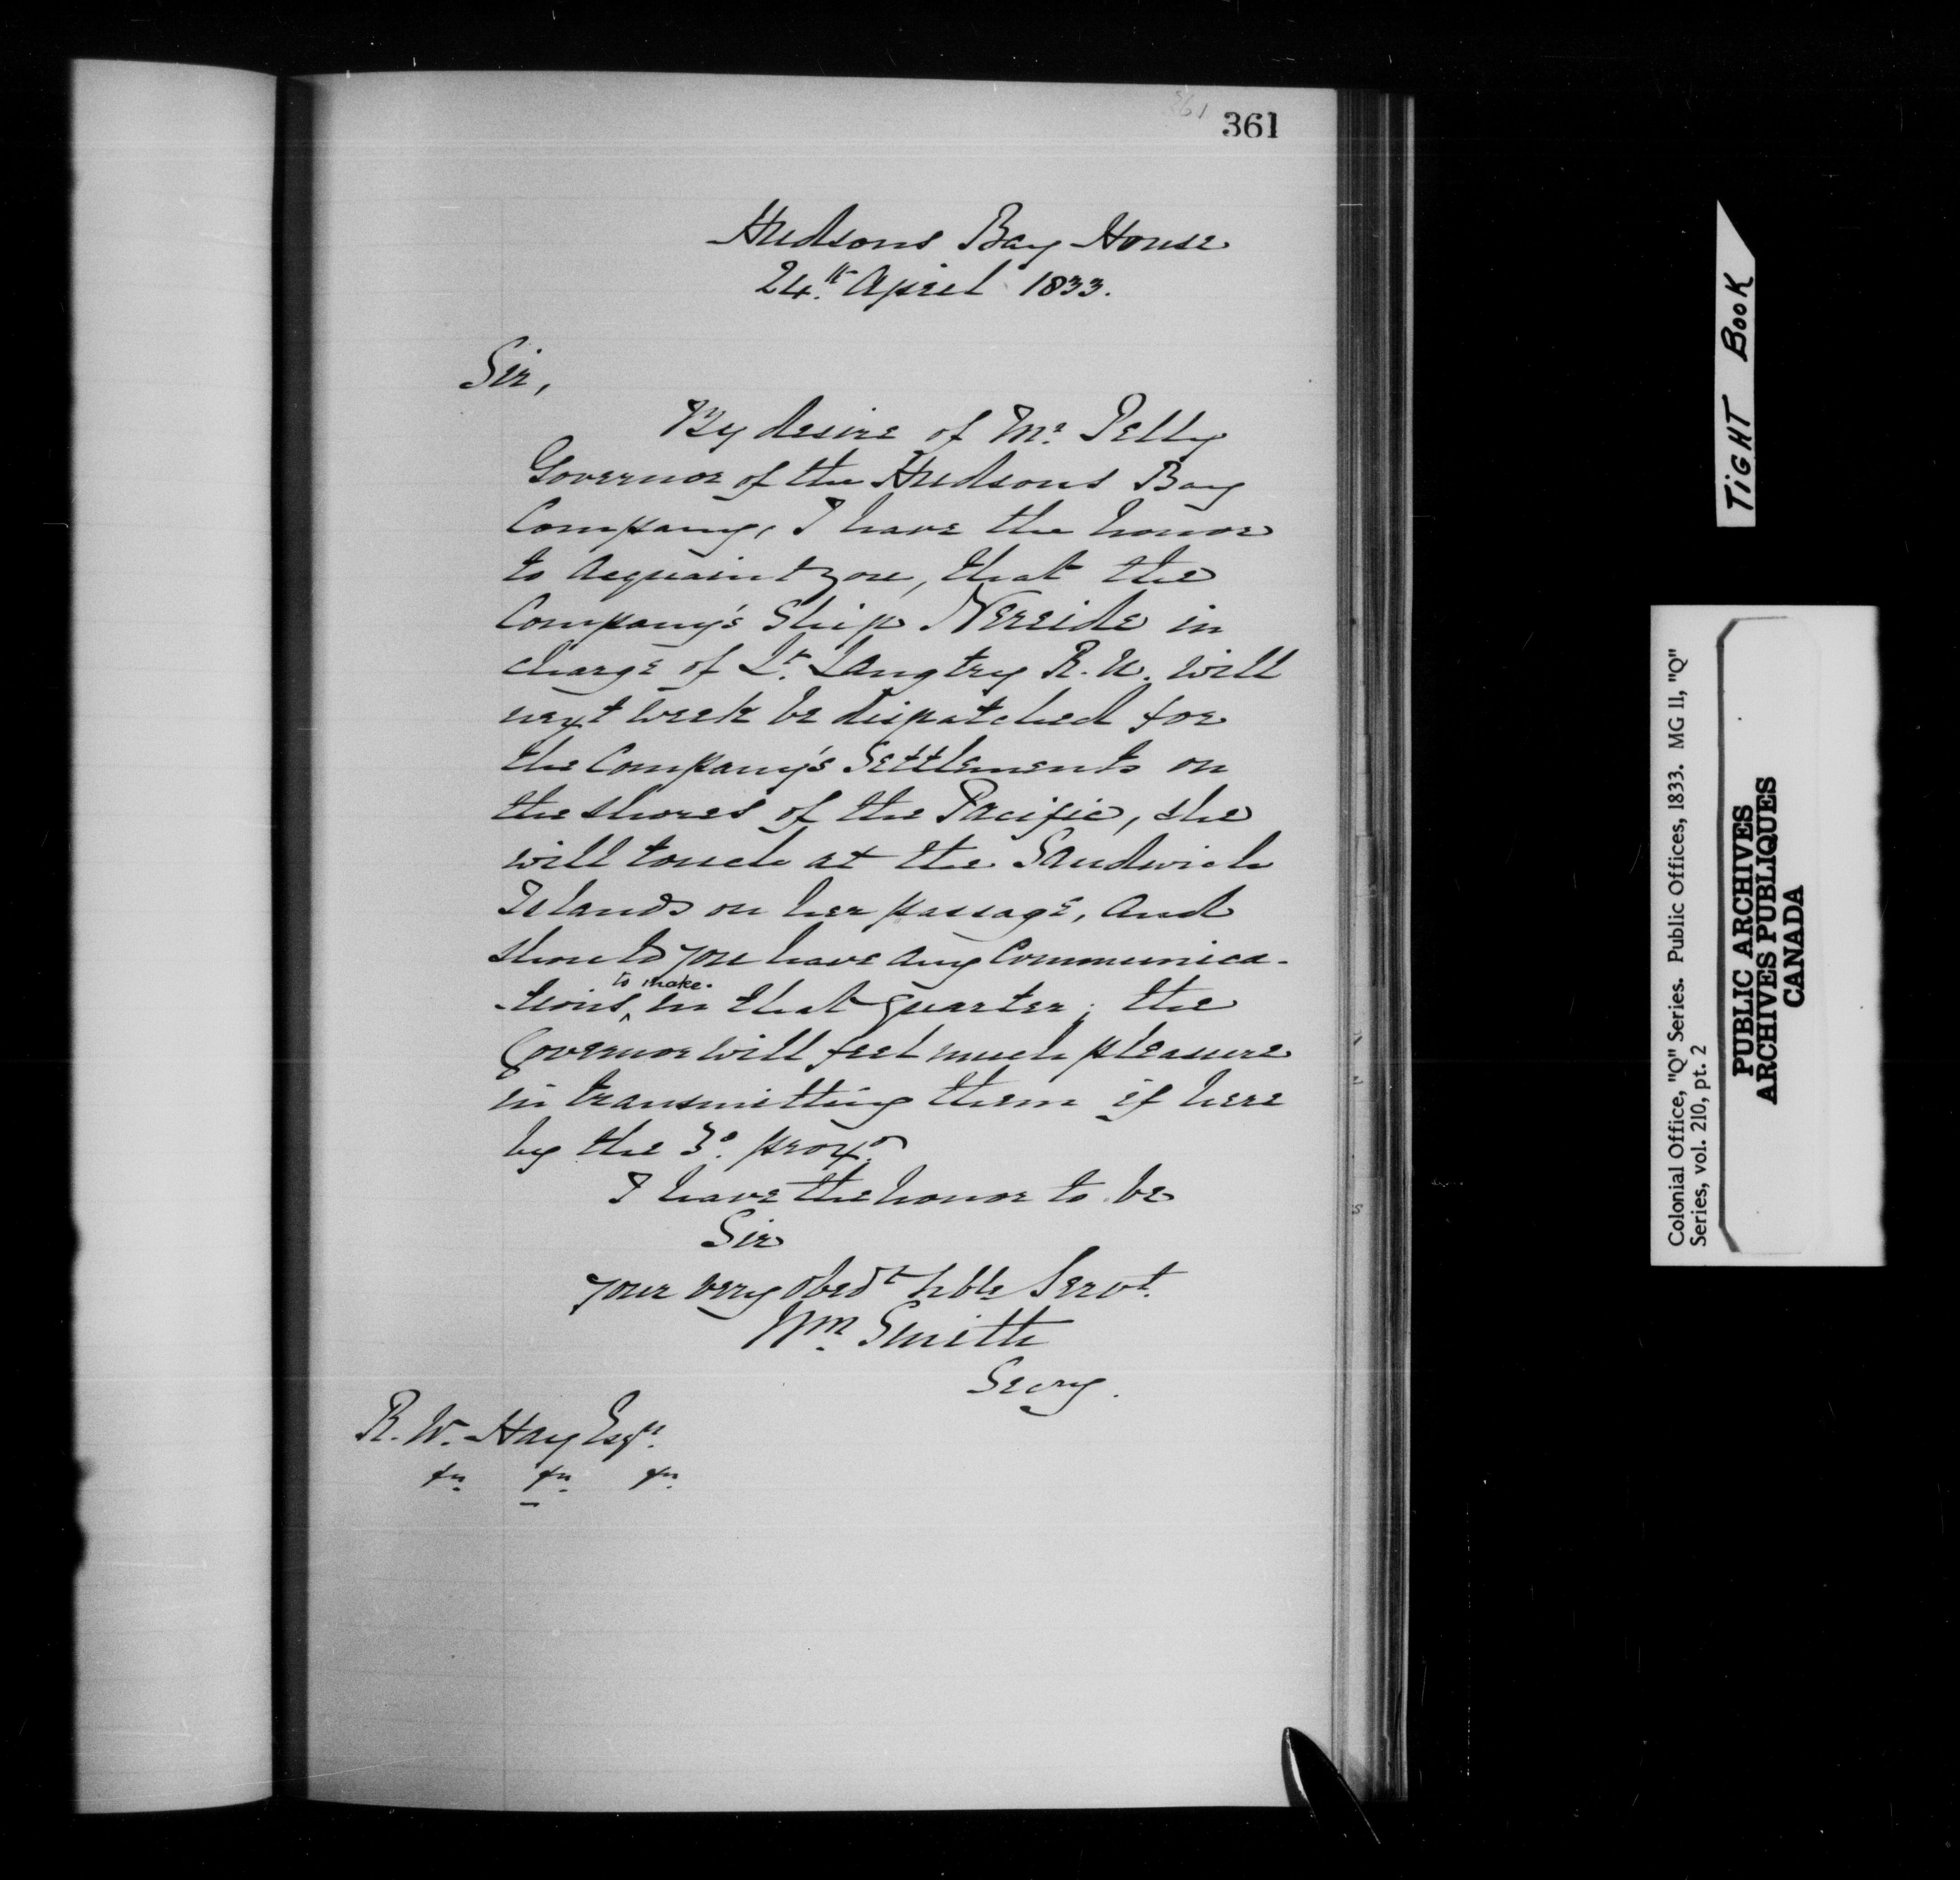 361
361
Hudsons Bay House
24th April 1833.
Sir,
By desire of Mr. Pelly
Governor of the Hudsons Bay
Company, I have the honor
to acquaint you, that the
Company's Ship Nereide in
charge of Lt. Langtry R.N. will
next week be dispatched for
the Company's Settlements on
the shores of the Pacific, she
will touch at the Sandwich
Islands on her passage, and
should you have any Communica-
-tions ^to make in that quarter; the
Governor will feel much pleasure
in transmitting them if here
by the 3d. proxo.
I have the honor to be
Sir
your very obedt hble Servt.
Wm. Smith
Secry.
R. W. Hay Esqr.
&c. &c. &c.
TIGHT BOOK
Colonial Office, "Q" Series. Public Offices, 1833. MG 11, "Q"
Series, vol. 210, pt. 2
PUBLIC ARCHIVES
ARCHIVES PUBLIQUES
CANADA